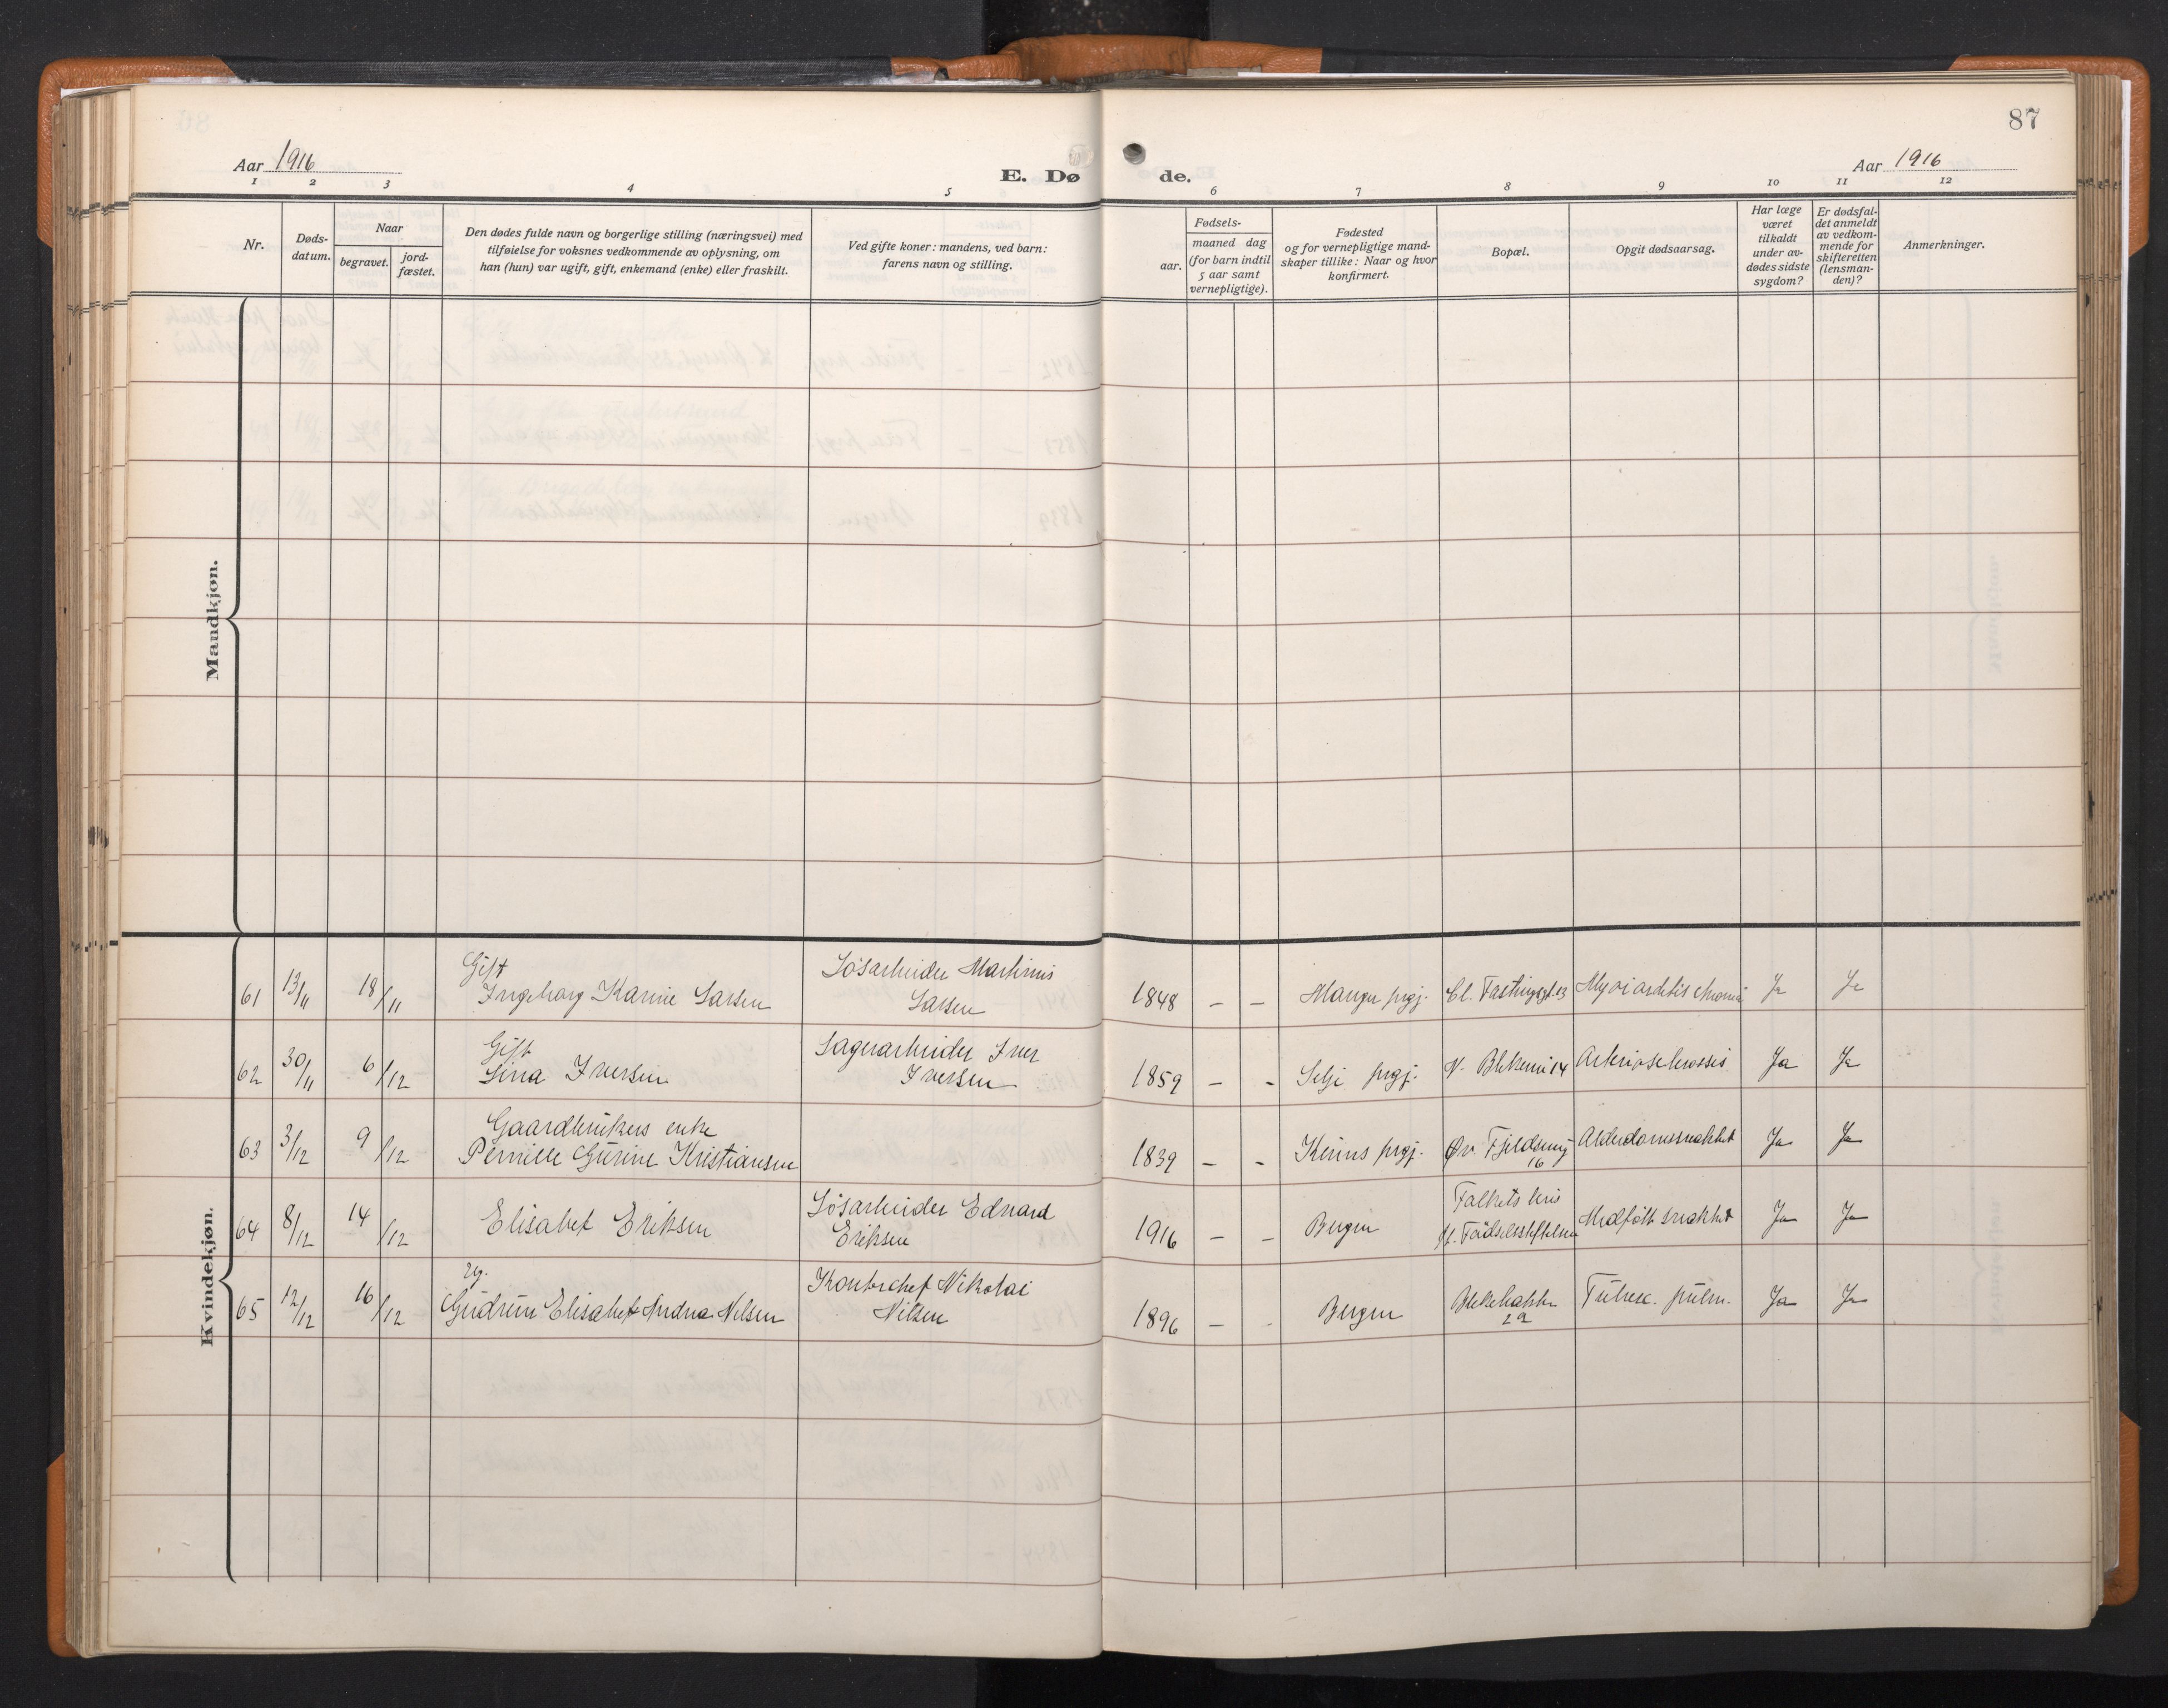 87
Aar 1916
E. Dø de.
Aar 1916
1 2 3 4 5 6 7 8 9 10 11 12
Nr.
Døds-
datum.
Naar
begravet.
jord-
fæstet.
Den dødes fulde navn og borgerlige stilling (næringsvei) med
tilføielse for voksnes vedkommende av oplysning, om
han (hun) var ugift, gift, enkemand (enke) eller fraskilt.
Ved gifte koner: mandens, ved barn:
farens navn og stilling.
Fødsels-
aar.
maaned dag
(for barn indtil
5 aar samt
vernepligtige).
Fødested
og for vernepligtige mand-
skaper tillike: Naar og hvor
konfirmert.
Bopæl.
Opgit dødsaarsag.
Har læge
været
tilkaldt
under av-
dødes sidste
sygdom?
Er dødsfal-
det anmeldt
av vedkom-
mende for
skifteretten
(lensman-
den)?
Anmerkninger.
Mandkjøn.
Kvindekjøn.
61 13/11 18/11 Gift
Ingeborg Karine Larsen
Løsarbeider Martinus
Larsen
1848 – – Manger prgj. Cl. Fastingsgt. 13 Myocarditis chronica Ja Ja
62 30/11 6/12 Gift
Lina Iversen
Lagerarbeider Iver
Iversen
1859 – - Selje prgj. N. Blekevei 14 Arteriosclerosis Ja Ja
63 3/12 9/12 Gaardbrukers enke
Pernille Gurine Kristiansen
1839 – - Kinns prgj. Øv. Fjeldsmug
16
Alderdomssvakhet Ja Ja
64 8/12 14/12 Elisabet Eriksen
Løsarbeider Edvard
Eriksen
1916 – – Bergen
Falkets
Fødselsstiftelsen
Medfødt svakhet Ja Ja
65 12/12 16/12 Ug.
Gudrun Elisabet Andrea Nilsen
Kontorchef Nikolai
Nilsen
1896 – - Bergen Blekebakken
29
Tuberc. pulm. Ja Ja